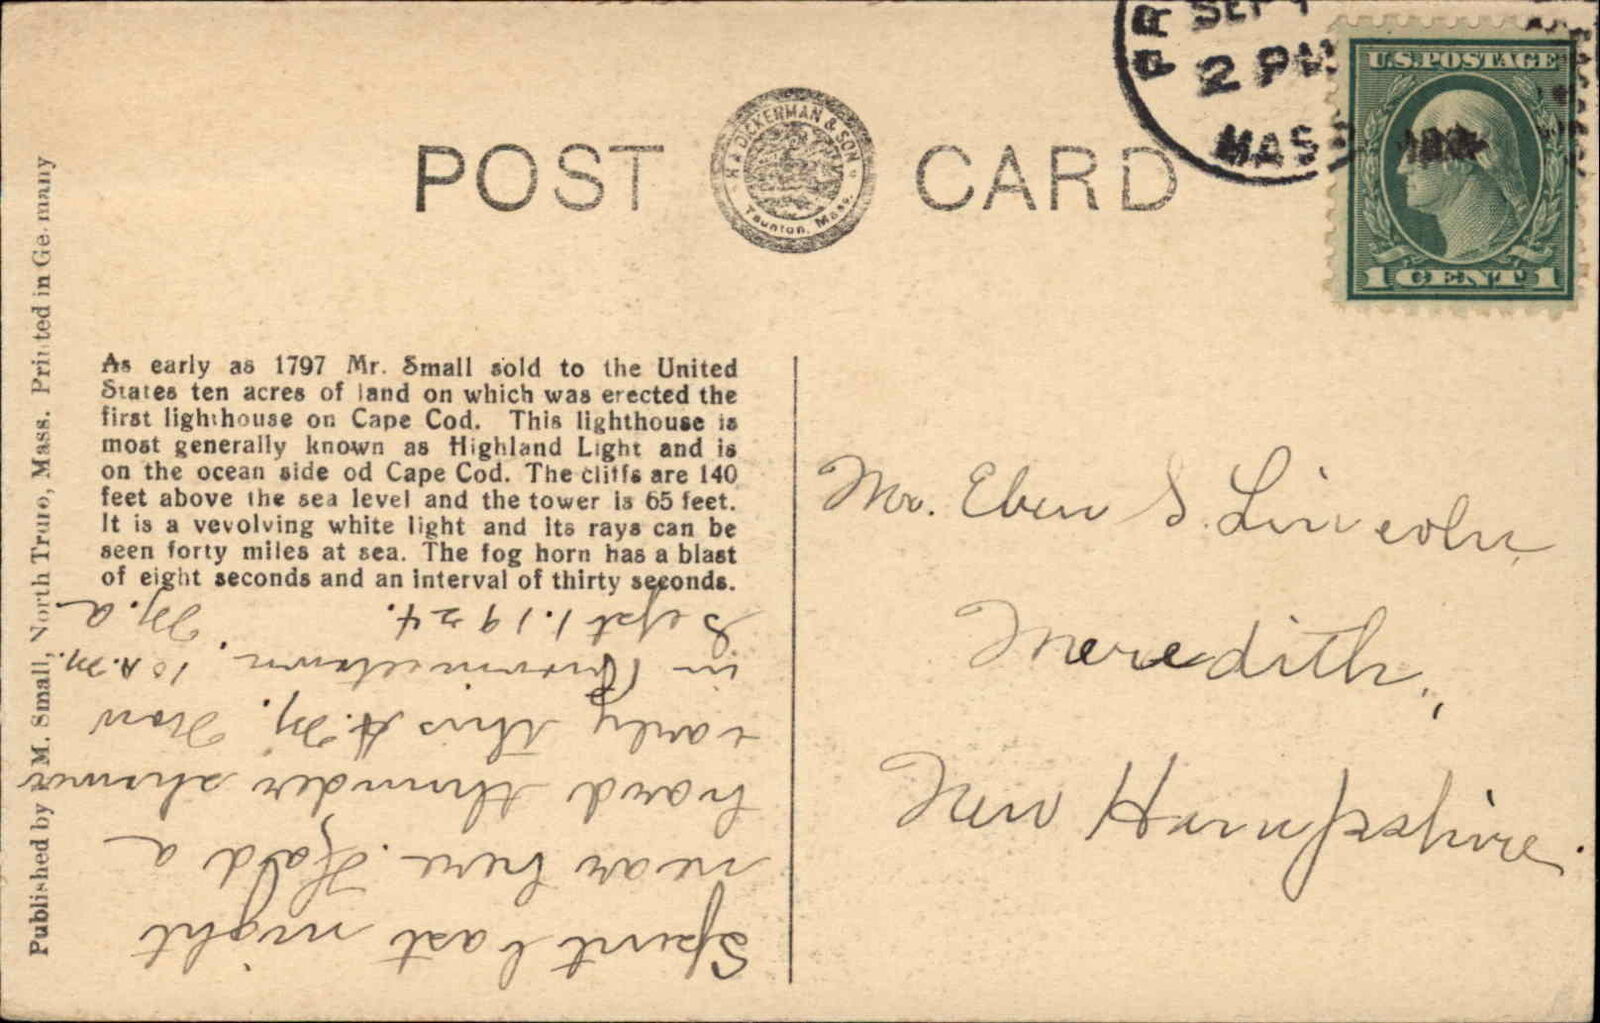 POST CARD
H A DICKERMAN & SON
Taunton, Mass.
SEP 1
2 PM
MASS.
U.S. POSTAGE
1 CENT 1
Published by M. Small, North Truro, Mass. Printed in Germany
As early as 1797 Mr. Small sold to the United
States ten acres of land on which was erected the
first lighthouse on Cape Cod. This lighthouse is
most generally known as Highland Light and is
on the ocean side od Cape Cod. The cliffs are 140
feet above the sea level and the tower is 65 feet.
It is a vevolving white light and its rays can be
seen forty miles at sea. The fog horn has a blast
of eight seconds and an interval of thirty seconds.
Spent last night
near here. Had a
hard thunder shower
early this A.M. Now
in Provincetown, 10 A.M.
Sept 1. 1924.
M.A.
Mr. Eben S. Lincoln,
Meredith,
New Hampshire.